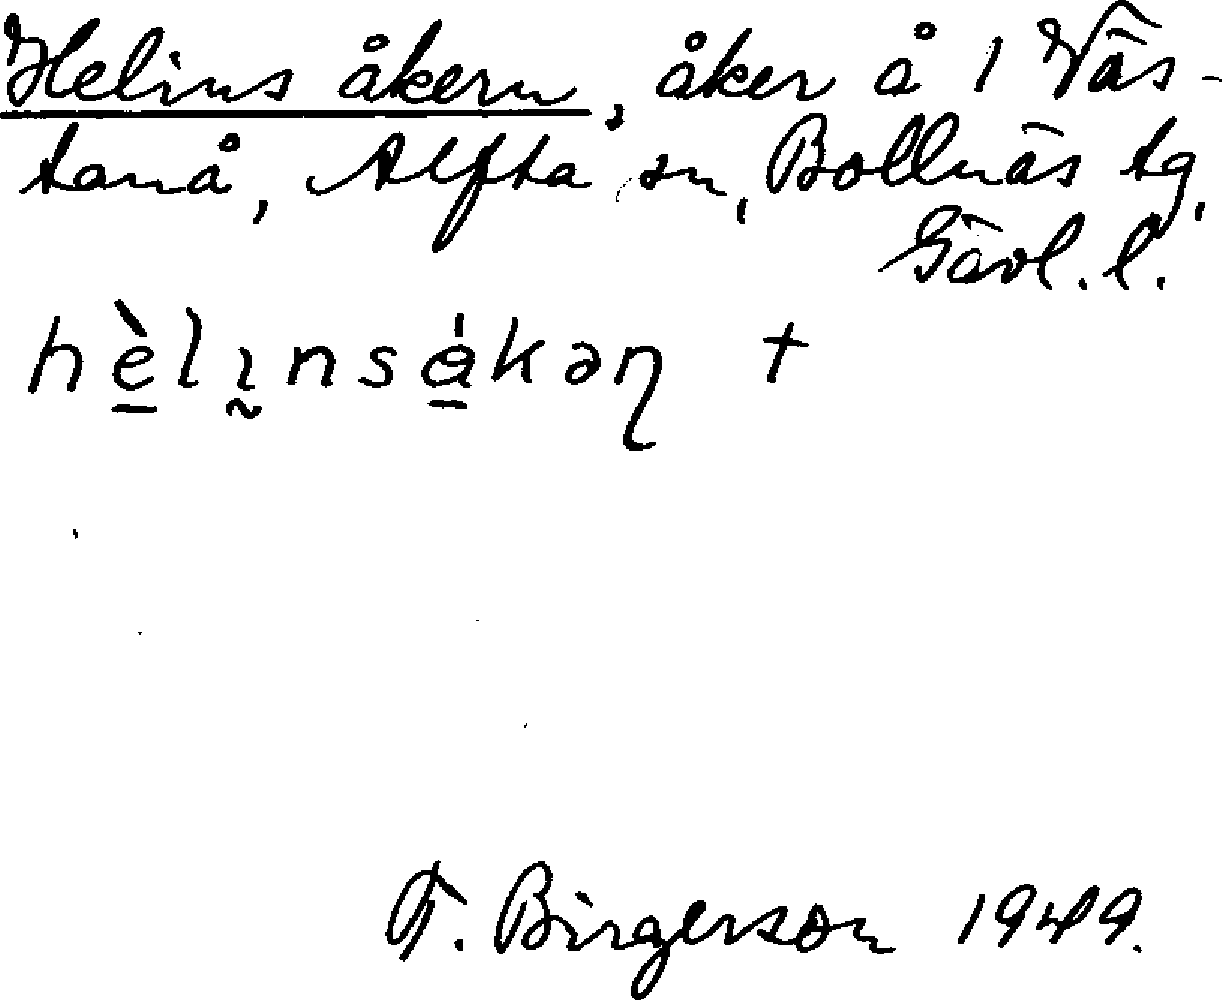 Helins åkern, åker å 1 Väs-
tanå, Alfta sn, Bollnäs tg,
Gävl. l.
hè̱lı̰nsǻ̱kəɳ +
F. Birgerson 1949.